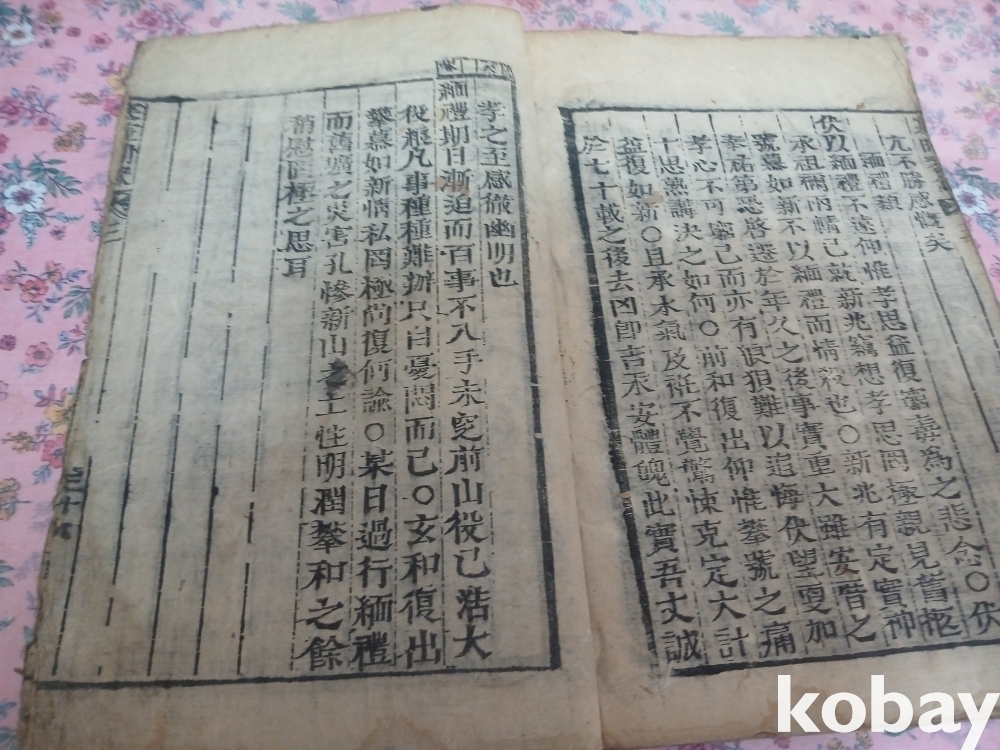 尤不勝感慨矣
緬禮類
伏以緬禮不遠仰惟孝思益復寗毒爲之悲念〇伏
承祖禰兩㡣已就新兆竊想孝思罔極親見舊柩
號慕如新不以緬禮而情殺也〇新兆有定實神
奉祐第恐啓遷於年久之後事實重大雖安厝之
孝心不可寧已而亦有狼狽難以追悔伏望更加
十思熟講決之如何〇前和復出仰惟攀號之痛
益復如新〇且承水氣及斑不覺驚悚克定大計
於七十載之後去凶卽吉永安體魄出實吾丈誠
孝之至感徹幽明也
緬禮期日漸迫而百事不入手未定前山役已浩大
役粮凡事種種難辦只自憂悶而已〇玄和復出
攀慕如新情私罔極尙復何諭〇某日過行緬禮
而舊壙之災害孔慘新山之土性明潤攀和之餘
稍慰罔極之思耳
kobay